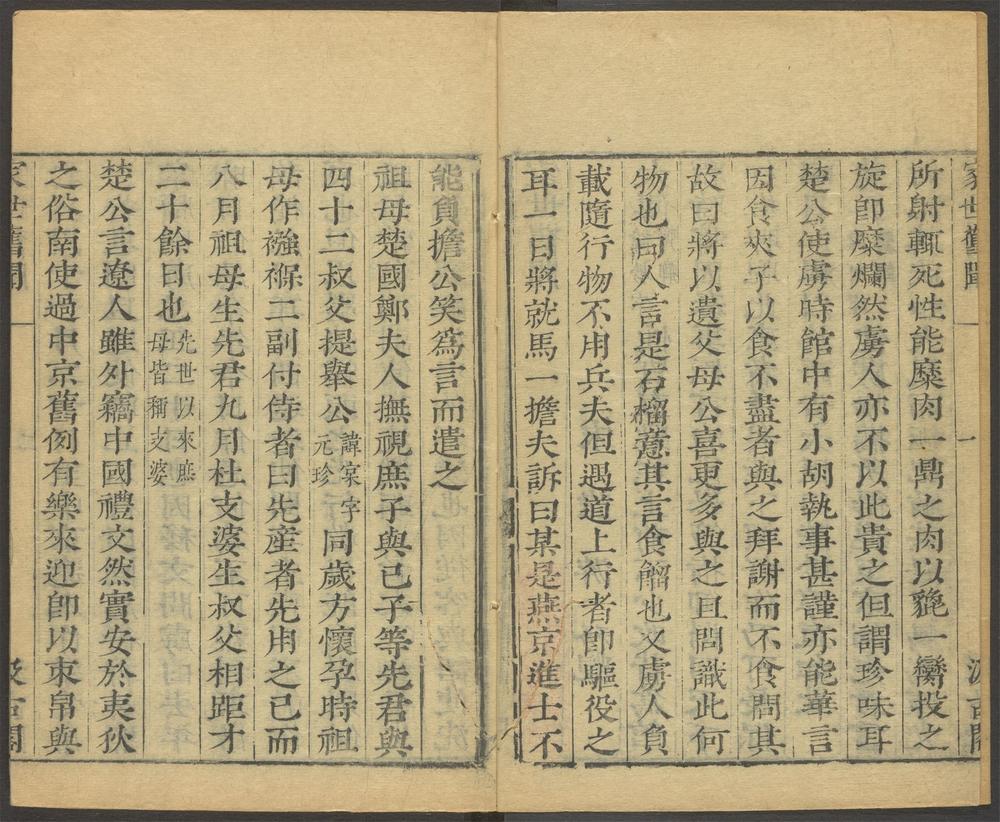 家世舊聞 一 汲古閣
所射輒死性能糜肉一鼎之肉以貔一臠投之
旋即糜爛然虜人亦不以此貴之但謂珍味耳
楚公使虜時館中有小胡執事甚謹亦能華言
因食夾子以食不盡者與之拜謝而不食問其
故曰將以遺父母公喜更多與之且問識此何
物也曰人言是石榴意其言食餾也又虜人負
載隨行物不用兵夫但遇道上行者即驅役之
耳一日將就馬一擔夫訴曰某是燕京進士不
能負擔公笑為言而遣之
祖母楚國鄭夫人撫視庶子與已子等先君與
四十二叔父提舉公諱寀字元珍同歲方懷孕時祖
母作襁褓二副付侍者曰先產者先用之已而
八月祖母生先君九月杜支婆生叔父相距才
二十餘日也先世以來庶母皆稱支婆
楚公言遼人雖外竊中國禮文然實安於夷狄
之俗南使過中京舊例有樂來迎即以束帛與
家世舊聞 汲古閣